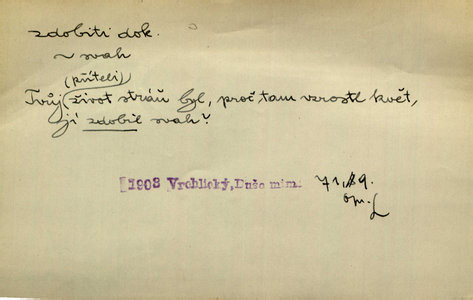 zdobiti dok.
~ svah
(příteli)
Tvůj život stráň byl, proč tam vzrostl květ,
jí zdobil svah?
[1903 Vrchlický, Duše mim. 71, 89.